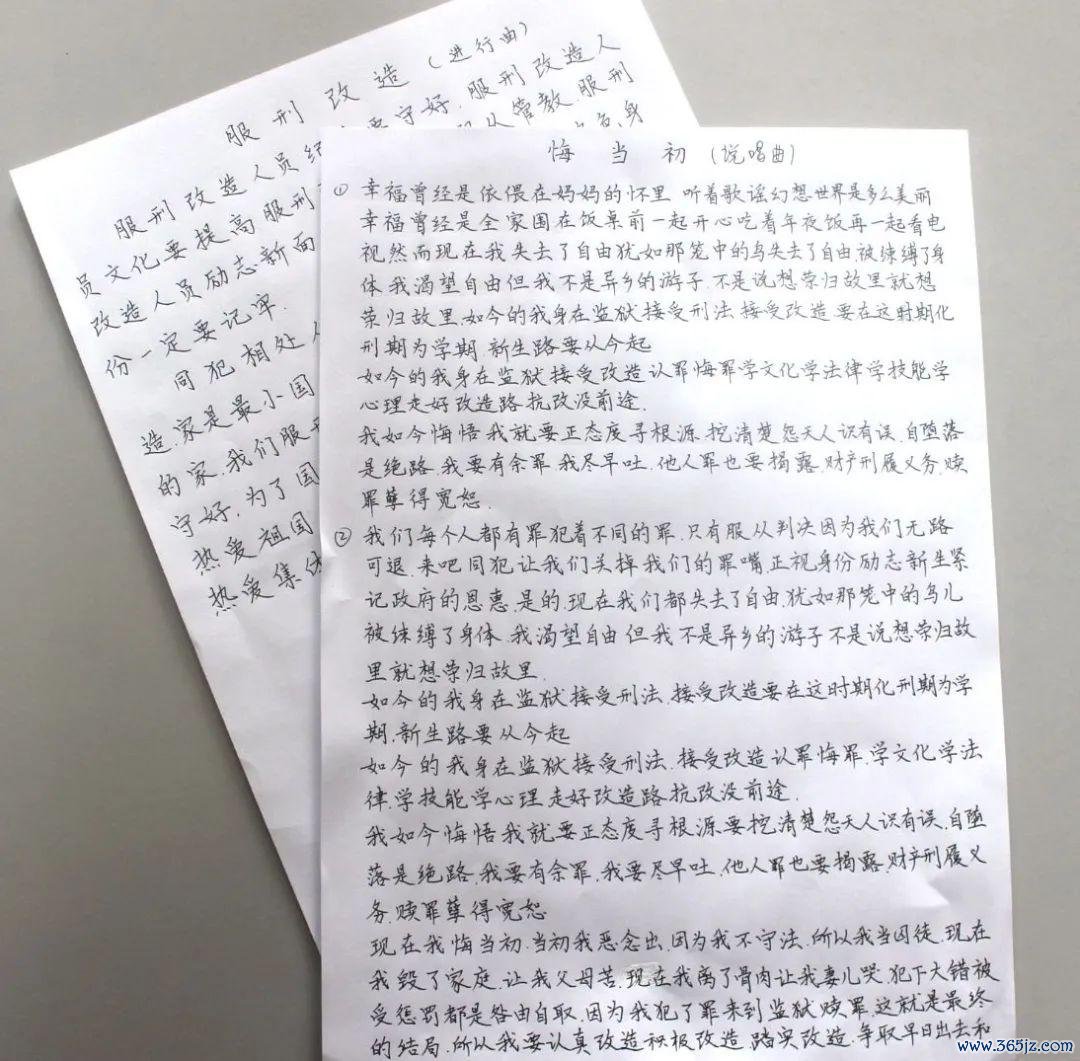 服刑改造（进行曲）
服刑改造人员纪 要守好.服刑改造人
员文化要提高服刑 从管教.服刑
改造人员励志新面 身
份一定要记牢.
同犯相处
造.家是最小国
的家.我们服刑
守好.为了国
热爱祖国
热爱集体
悔当初（说唱曲）
① 幸福曾经是依偎在妈妈的怀里 听着歌谣幻想世界是多么美丽
幸福曾经是全家围在饭桌前一起开心吃着年夜饭再一起看电
视然而现在我失去了自由犹如那笼中的鸟失去了自由.被束缚了身
体.我渴望自由但我不是异乡的游子.不是说想荣归故里就想
荣归故里.如今的我身在监狱接受刑法.接受改造.要在这时期化
刑期为学期.新生路要从今起
如今的我身在监狱接受改造认罪悔罪学文化学法律学技能学
心理走好改造路.抗改没前途.
我如今悔悟我就要正态度寻根源.挖清楚怨天人识有误.自堕落
是绝路.我要有余罪.我尽早吐.他人罪也要揭露.财产刑履义务.赎
罪孽得宽恕.
② 我们每个人都有罪犯着不同的罪.只有服从判决因为我们无路
可退.来吧同犯让我们关掉我们的罪嘴.正视身份励志新生紧
记政府的恩惠.是的.现在我们都失去了自由.犹如那笼中的鸟儿
被束缚了身体.我渴望自由但我不是异乡的游子不是说想荣归故
里就想荣归故里.
如今的我身在监狱接受刑法.接受改造要在这时期化刑期为学
期.新生路要从今起
如今的我身在监狱接受刑法.接受改造认罪悔罪.学文化学法
律.学技能学心理.走好改造路.抗改没前途.
我如今悔悟我就要正态度寻根源.要挖清楚怨天人识有误.自堕
落是绝路.我要有余罪.我要尽早吐.他人罪也要揭露.财产刑履义
务.赎罪孽得宽恕
现在我悔当初.当初我恶念出.因为我不守法.所以我当囚徒.现在
我毁了家庭.让我父母苦.现在我离了骨肉让我妻儿哭.犯下大错被
受惩罚都是咎由自取.因为我犯了罪来到监狱赎罪.这就是最终
的结局.所以我要认真改造积极改造.踏实改造.争取早日出去和
www.365jz.com